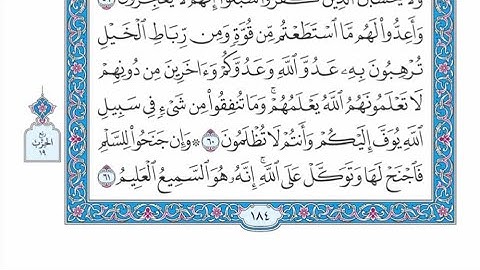 وَلَا يَحْسَبَنَّ ٱلَّذِينَ كَفَرُوا۟ سَبَقُوٓا۟ إِنَّهُمْ لَا يُعْجِزُونَ ٥٩
وَأَعِدُّوا۟ لَهُم مَّا ٱسْتَطَعْتُم مِّن قُوَّةٍ وَمِن رِّبَاطِ ٱلْخَيْلِ
تُرْهِبُونَ بِهِۦ عَدُوَّ ٱللَّهِ وَعَدُوَّكُمْ وَءَاخَرِينَ مِن دُونِهِمْ
لَا تَعْلَمُونَهُمُ ٱللَّهُ يَعْلَمُهُمْ ۚ وَمَا تُنفِقُوا۟ مِن شَىْءٍ فِى سَبِيلِ
ٱللَّهِ يُوَفَّ إِلَيْكُمْ وَأَنتُمْ لَا تُظْلَمُونَ ٦٠ ۞ وَإِن جَنَحُوا۟ لِلسَّلْمِ
فَٱجْنَحْ لَهَا وَتَوَكَّلْ عَلَى ٱللَّهِ ۚ إِنَّهُۥ هُوَ ٱلسَّمِيعُ ٱلْعَلِيمُ ٦١
١٨٤
ربع
الحزب
١٩